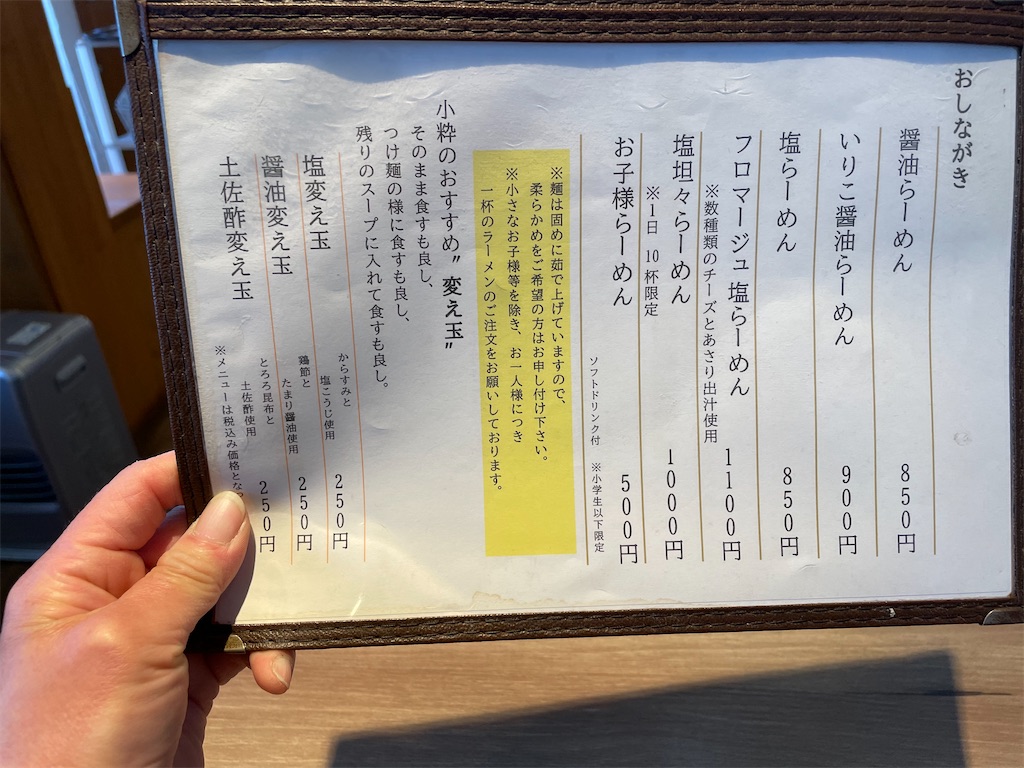 おしながき
醤油らーめん 850円
いりこ醤油らーめん 900円
塩らーめん 850円
フロマージュ塩らーめん 1100円
※数種類のチーズとあさり出汁使用
塩坦々らーめん 1000円
※1日 10杯限定
お子様らーめん 500円
ソフトドリンク付 ※小学生以下限定
※麺は固めに茹で上げていますので、
柔らかめをご希望の方はお申し付け下さい。
※小さなお子様等を除き、お一人様につき
一杯のラーメンのご注文をお願いしております。
小粋のおすすめ〟変え玉〟
そのまま食すも良し、
つけ麺の様に食すも良し、
残りのスープに入れて食すも良し。
塩変え玉 からすみと
塩こうじ使用 250円
醤油変え玉 鶏節と
たまり醤油使用 250円
土佐酢変え玉 とろろ昆布と
土佐酢使用 250円
※メニューは税込み価格とな